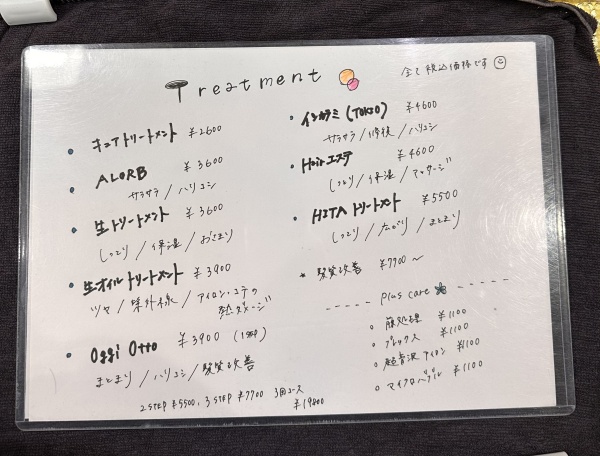 Treatment
全て税込価格です
• キュアトリートメント ¥2600
• ALORB ¥3600
サラサラ / ハリコシ
• 生トリートメント ¥3600
しっとり / 保湿 / おさまり
• 生オイルトリートメント ¥3900
ツヤ / 紫外線 / アイロン・コテの
熱ダメージ
• Oggi Otto ¥3900 (1step)
まとまり / ハリコシ / 髪質改善
2STEP ¥5500, 3STEP ¥7700 3回コース
¥19800
• インカラミ (TOKIO) ¥4600
サラサラ / 修復 / ハリコシ
• Hairエステ ¥4600
しっとり / 保湿 / マッサージ
• HITA トリートメント ¥5500
しっとり / 広がり / まとまり
* 髪質改善 ¥7700〜
----- Plus care -----
• 前処理 ¥1100
¥1100
• 超音波アイロン ¥1100
• マイクロバブル ¥1100